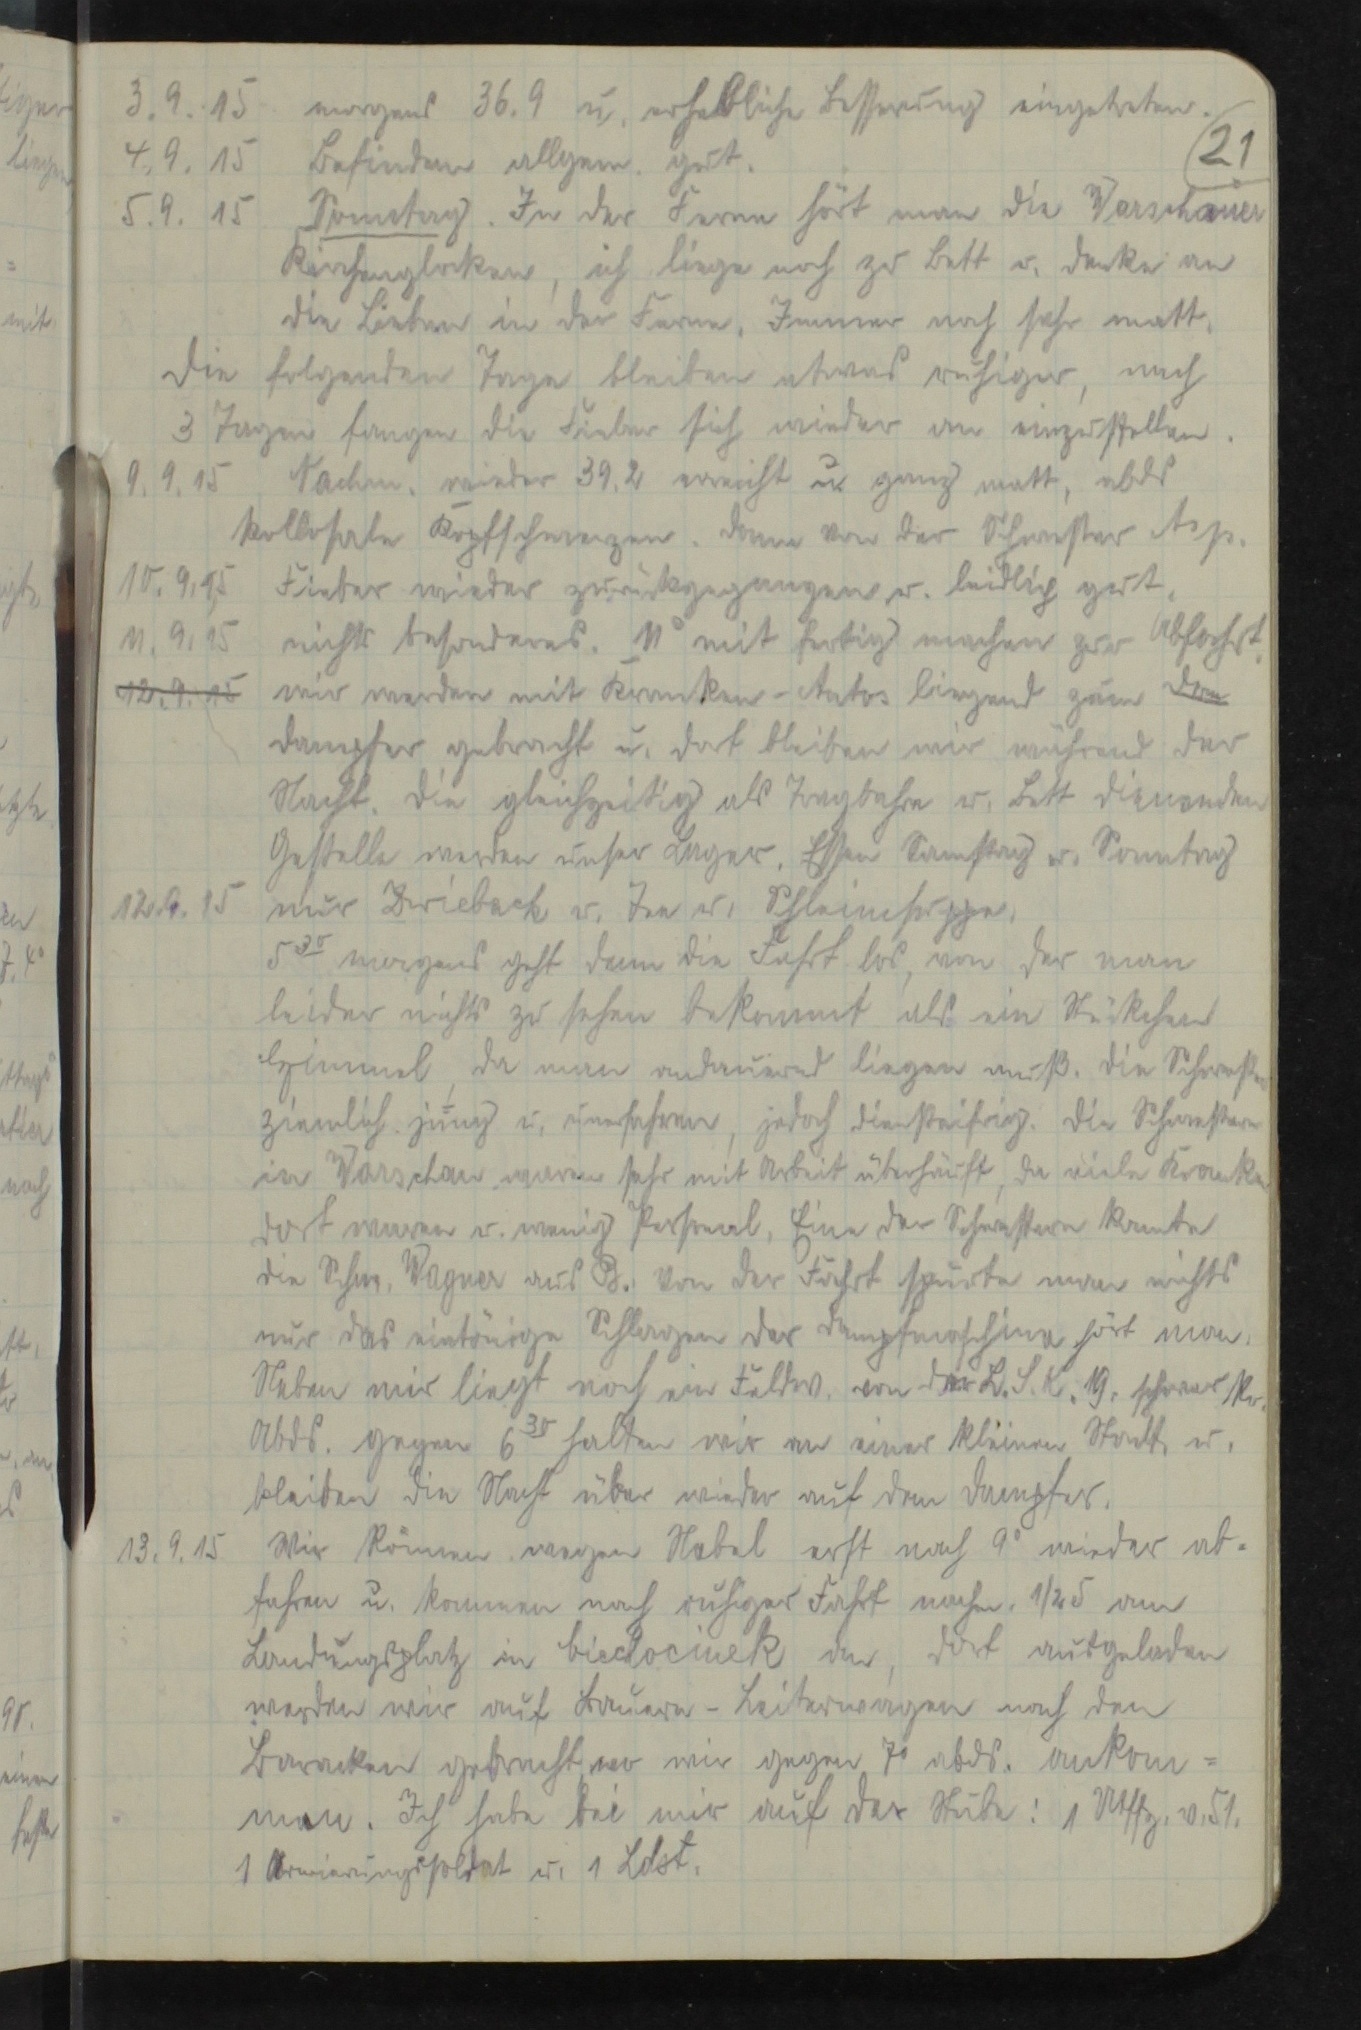 3. 9. 15 morgens 36.9 u. erhebliche Besserung eingetreten.
21
4. 9. 15 Befinden allgem. gut.
5. 9. 15 Sonntag. In der Ferne hört man die Warschauer
Kirchenglocken, ich liege noch zu Bett u. denke an
die Lieben in der Ferne. Immer noch sehr matt.
Die folgenden Tage bleiben etwas ruhiger, nach
3 Tagen fangen die Fieber sich wieder an einzustellen.
9. 9. 15 Nachm. wieder 39.2 erreicht u. ganz matt, abds
kollosale Kopfschmerzen. Dann von der Schwester Asp.
10. 9. 15 Fieber wieder zurückgegangen u. leidlich gut.
11. 9. 15 nichts besonderes. 11° mit fertig machen zur Abfahrt.
12. 9. 15 wir werden mit Kranken-Autos liegend zum Dam
Dampfer gebracht u. dort bleiben wir während der
Nacht. Die gleichzeitig als Tragbahre u. Bett dienenden
Gestelle werden unser Lager. Essen Samstag u. Sonntag
12. 9. 15 nur Zwieback u. Tee u. Schleimsuppe.
5 30 morgens geht dann die Fahrt los, von der man
leider nichts zu sehen bekommt als ein Stückchen
Himmel, da man andauernd liegen muß. Die Schwestern
ziemlich jung u. unerfahren, jedoch diensteifrig. Die Schwestern
in Warschau waren sehr mit Arbeit überhäuft, da viele Kranke
dort waren u. wenig Personal. Eine der Schwestern kannte
die Schw. Wagner aus B. Von der Fahrt spürte man nichts
nur das eintönige Schlagen der Dampfmaschine hört man.
Neben mir liegt noch ein Feldw. von der L.S.K. 19. schwer kr.
Abds. gegen 6 30 halten wir an einer kleinen Stadt u.
bleiben die Nacht über wieder auf dem Dampfer.
13. 9. 15 Wir können wegen Nebel erst nach 9° wieder ab=
fahren u. kommen nach ruhiger Fahrt nachm. 1/2 5 am
Landungsplatz in Ciechocinek an, dort ausgeladen
werden wir auf Bauern-Leiterwagen nach den
Baracken gebracht, wo wir gegen 7° abds. ankom=
men. Ich habe bei mir auf der Stube: 1 Utffz. v. 51.
1 Armierungssoldat u. 1 Ldst.